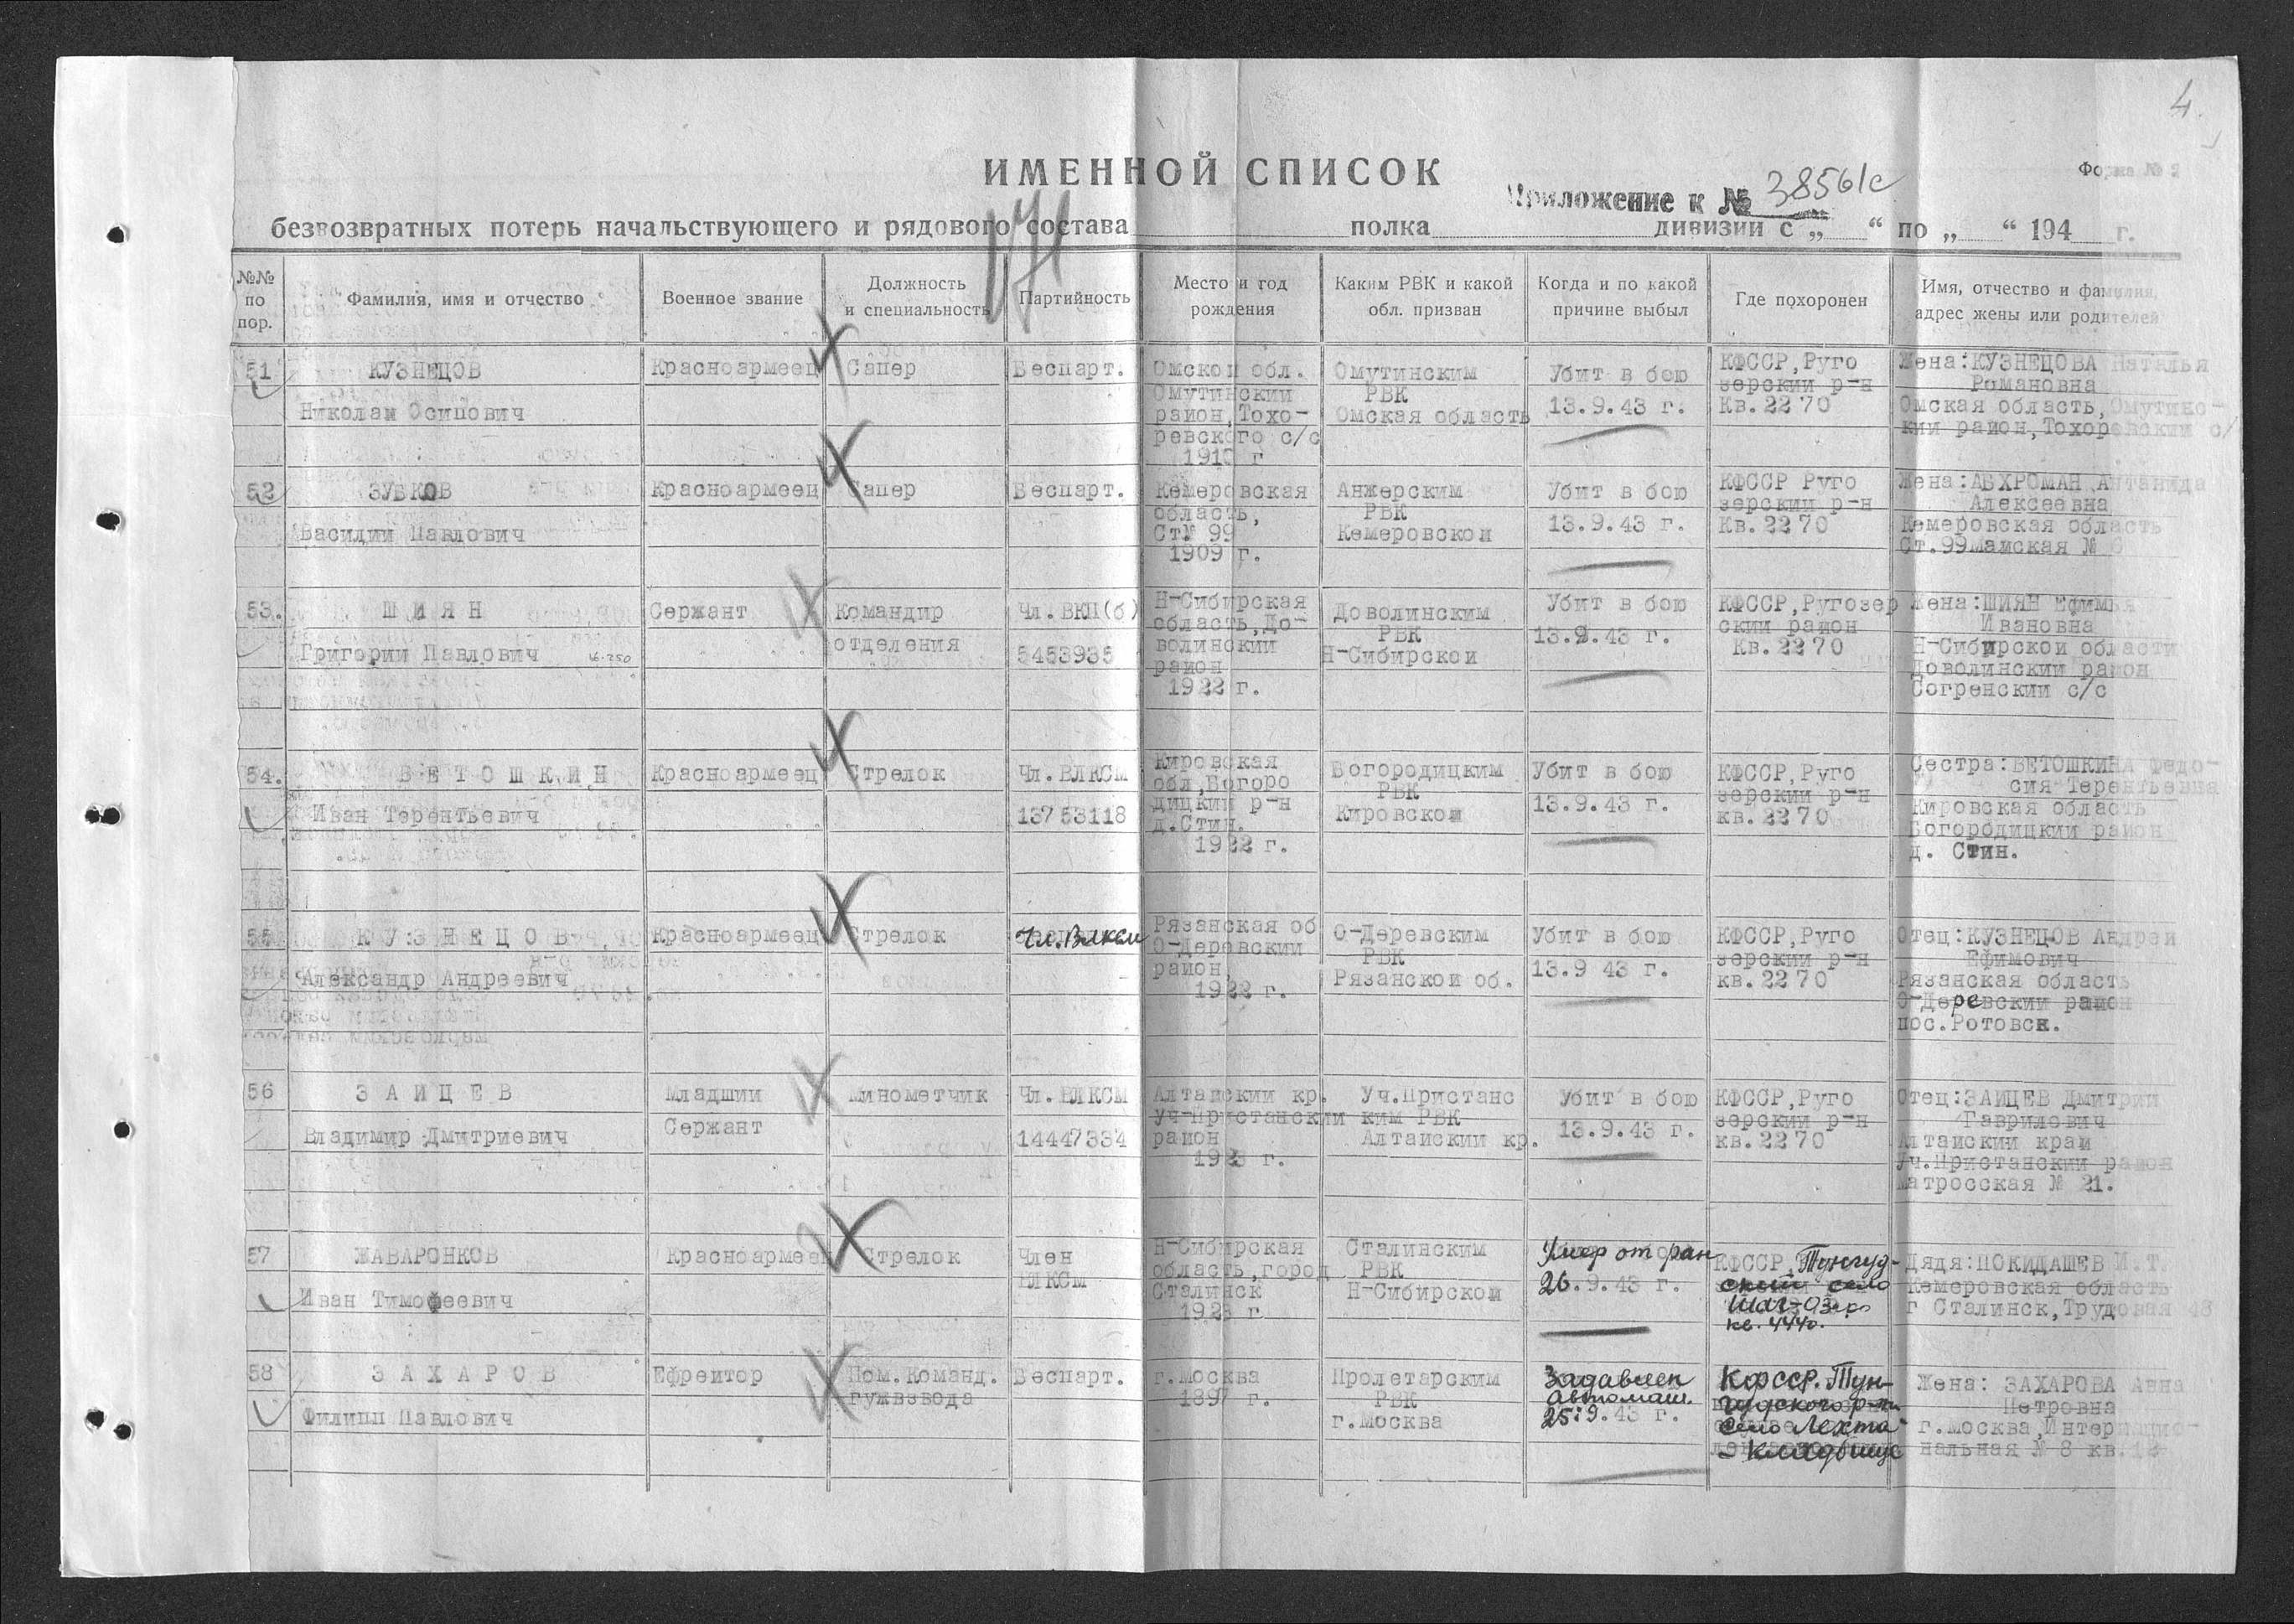 4.
ИМЕННОЙ СПИСОК
Форма № 2
Приложение к № 38561с
безвозвратных потерь начальствующего и рядового состава полка дивизии с „ “ по „ “ 194 г.
№№ по пор.
Фамилия, имя и отчество
Военное звание
Должность и специальность
Партийность
Место и год рождения
Каким РВК и какой обл. призван
Когда и по какой причине выбыл
Где похоронен
Имя, отчество и фамилия, адрес жены или родителей
51
КУЗНЕЦОВ
Николай Осипович
Красноармеец
Сапер
Беспарт.
Омской обл.
Омутинский
район, Тохо-
ревского с/с
1910 г
Омутинским
РВК
Омская область
Убит в бою
13.9.43 г.
КФССР, Руго
зерский р-н
Кв. 2270
Жена: КУЗНЕЦОВА Наталья
Романовна
Омская область, Омутинс-
кий район, Тохоревский с/
52
ЗУБКОВ
Василий Павлович
Красноармеец
Сапер
Беспарт.
Кемеровская
область,
Ст№ 99
1909 г.
Анжерским
РВК
Кемеровской
Убит в бою
13.9.43 г.
КФССР Руго
зерский р-н
Кв. 2270
Жена: АВХРОМАН Антанида
Алексеевна
Кемеровская область
Ст. 99 Майская № 6
53.
ШИЯН
Григорий Павлович
Сержант
Командир
отделения
Чл. ВКП(б)
5453935
Н-Сибирская
область, До-
волинский
район
1922 г.
Доволинским
РВК
Н-Сибирской
Убит в бою
13.9.43 г.
КФССР, Ругозер
ский район
Кв. 2270
Жена: ШИЯН Ефимья
Ивановна
Н-Сибирской области
Доволинский район
Согренский с/с
54.
ВЕТОШКИН
Иван Терентьевич
Красноармеец
Стрелок
Чл. ВЛКСМ
13753118
Кировская
обл, Богоро
дицкий р-н
д. Стин.
1922 г.
Богородицким
РВК
Кировской
Убит в бою
13.9.43 г.
КФССР, Руго
зерский р-н
кв. 2270
Сестра: ВЕТОШКИНА Федо-
сия Терентьевна
Кировская область
Богородицкий район
д. Стин.
55
КУЗНЕЦОВ
Александр Андреевич
Красноармеец
Стрелок
Чл. Влксм
Рязанская об
О-Деревский
район,
1922 г.
О-Деревским
РВК
Рязанской об.
Убит в бою
13.9 43 г.
КФССР, Руго
зерский р-н
кв. 2270
Отец: КУЗНЕЦОВ Андрей
Ефимович
Рязанская область
О-Деревский район
пос. Ротовск.
56
ЗАЙЦЕВ
Владимир Дмитриевич
Младший
Сержант
Минометчик
Чл. ВЛКСМ
14447334
Алтайский кр.
Уч-Пристанский
район
1923 г.
Уч. Пристанс
ким РВК
Алтайский кр.
Убит в бою
13.9.43 г.
КФССР, Руго
зерский р-н
кв. 2270
Отец: ЗАЙЦЕВ Дмитрий
Гаврилович
Алтайский край
Уч. Пристанский район
Матросская № 21.
57
ЖАВАРОНКОВ
Иван Тимофеевич
Красноармеец
Стрелок
Член
ВЛКСМ
Н-Сибирская
область, город
Сталинск
1923 г.
Сталинским
РВК
Н-Сибирской
Умер от ран
26.9.43 г.
КФССР, Тунгуд-
ский село
Шаг-Озеро
кв. 4440.
Дядя: ПОКИДАШЕВ И.Т.
Кемеровская область
г Сталинск, Трудовая 48
58
ЗАХАРОВ
Филипп Павлович
Ефрейтор
Пом. Команд.
гужвзвода
Беспарт.
г. Москва
1897 г.
Пролетарским
РВК
г. Москва
Задавлен
автомаш.
25.9.43 г.
КФССР. Тун-
гудского р-на
село Лехта
- кладбище
Жена: ЗАХАРОВА Анна
Петровна
г. Москва, Интернацио-
нальная № 8 кв.